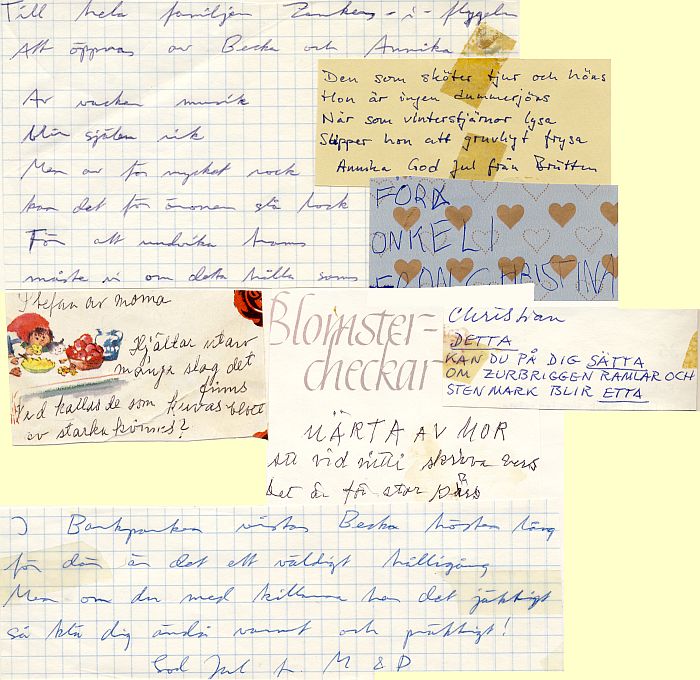 Till hela familjen i flygeln
Att öppnas av Becka och Annika
Av vacker musik
blir själen rik
Men av för mycket rock
kan det för öronen slå lock
För att undvika
måste vi om detta hålla sams
Den som sköter tjur och höns
Hon är ingen dummerjöns
När som vinterstjärnor lysa
Slipper hon att gruvligt frysa
Annika God Jul från
FÖRA
ONKELI
FRÅN CHRISTINA
Stefan av moma
Hjältar utav
många slag det
finns
Vad kallas de som kuvas blott
av starka kvinns?
Blomster-
checkar
MÄRTA AV MOR
att vid nitti skriva vers
det är för stor pärs
Christian
DETTA
KAN DU PÅ DIG SÄTTA
OM ZURBRIGGEN RAMLAR OCH
STENMARK BLIR ETTA
I Bankparken vistas Becka hösten lång
för där är det ett väldigt hålligång
Men om du med killarna har det jäktigt
så klä dig ändå varmt och präktigt!
God Jul f. M & P